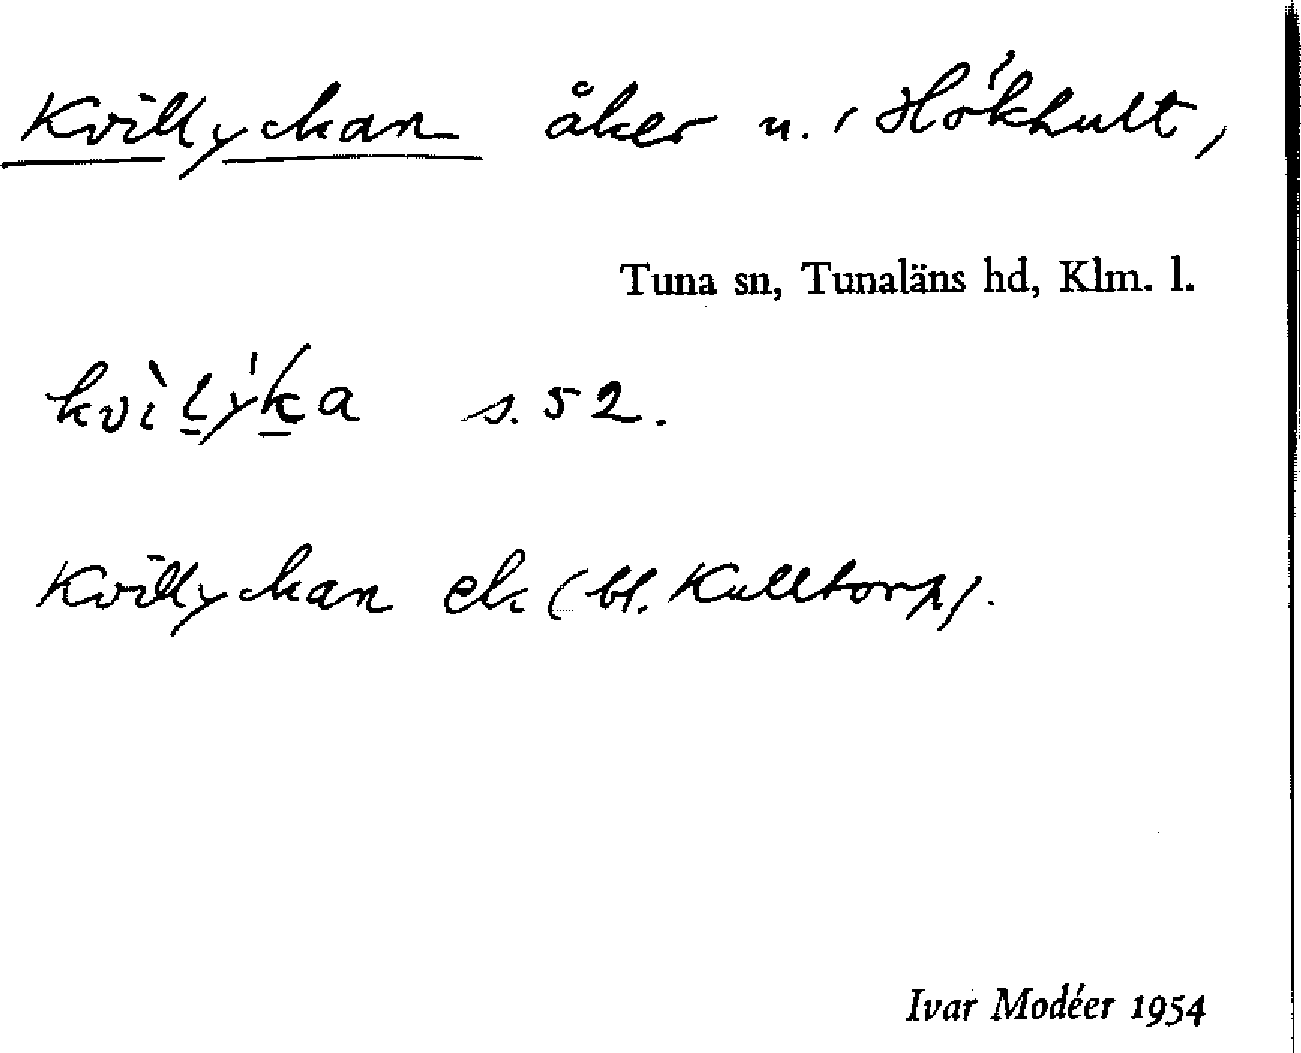 Kvillyckan åker u. Hökhult,
Tuna sn, Tunaläns hd, Klm. l.
kvìlýka s. 52.
Kvillyckan ek (bl. Kulltorp).
Ivar Modéer 1954